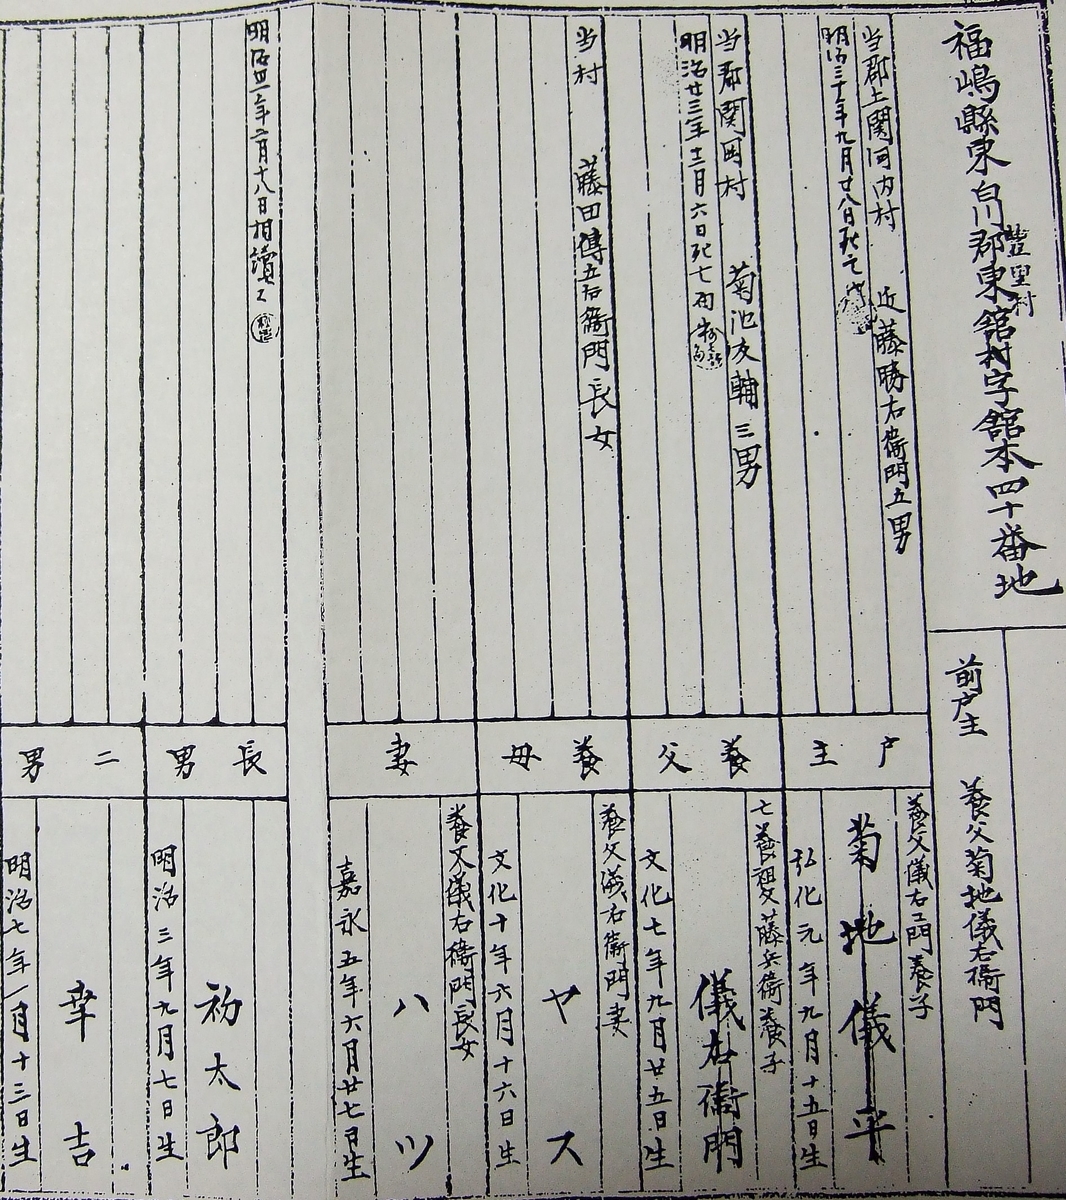 福嶋縣東白川郡東舘村字舘本四十番地
豊里村
前戸主 養父菊地儀右衛門
当郡上関河内村 近藤勝右衛門五男
明治三十年九月廿八日死亡
戸主
養父儀右エ門養子
菊地儀平
弘化元年九月十五日生
当郡関岡村 菊池友輔三男
明治廿三年十二月六日死亡
養父
亡養祖父藤兵衛養子
儀右衛門
文化七年九月廿五日生
当村 藤田傳五右衛門長女
養母
養父儀右衛門妻
ヤス
文化十年六月十六日生
妻
養父儀右衛門長女
ハツ
嘉永五年六月廿七日生
相續ス
長男
初太郎
明治三年九月七日生
二男
幸吉
明治七年一月十三日生